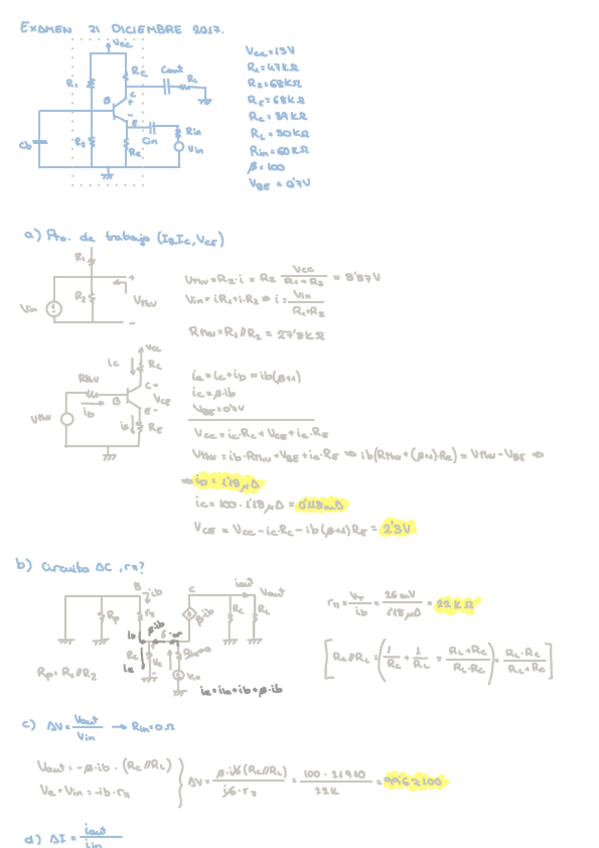 EXAMEN 21 DICIEMBRE 2017.
Vcc
R1
Rc
Cout
RL
C
B
+
-
E
Cb
R2
Cin
Rin
Vin
Vcc = 15V
R1 = 47KΩ
R2 = 68KΩ
RE = 68KΩ
Rc = 39KΩ
RL = 50KΩ
Rin = 60KΩ
β = 100
VBE = 0'7V
a) Pto. de trabajo (IB, Ic, VCE)
R1
+
Vin
R2
Vthv
-
Vthv = R2·i = R2 Vcc/(R1+R2) = 8'87V
Vin = iR1 + i·R2 ⇒ i = Vin/(R1+R2)
Rthv = R1//R2 = 27'8KΩ
Vcc
ic
Rc
Rthv
C+
B
VCE
ib
E-
Vthv
ie
RE
ie = ic + ib = ib(β+1)
ic = β·ib
VBE = 0'7V
Vcc = ic·Rc + VCE + ie·RE
Vthv = ib·Rthv + VBE + ie·RE ⇒ ib(Rthv + (β+1)·RE) = Vthv - VBE ⇒
⇒ ib = 1'18μA
ic = 100 · 1'18μA = 0'118mA
VCE = Vcc - ic·Rc - ib(β+1)RE = 2'3V
b) Circuito AC, rπ?
B
ib
C
iout
Vout
Rp
rπ
β·ib
Rc
RL
ie
Rp = R1//R2
ie = iin + ib + β·ib
rπ = VT/ib = 26mV/1'18μA = 22KΩ
[Rc//RL = (1/Rc + 1/RL = (RL+Rc)/(RL·Rc)) = (RL·Rc)/(RL+Rc)]
c) AV = Vout/Vin → Rin = 0Ω
Vout = -β·ib · (Rc//RL)
Ve = Vin = -ib·rπ
AV = β·ib(Rc//RL)/(ib·rπ) = 100·21910/22K = 99'6≈100
d) AI = iout/iin